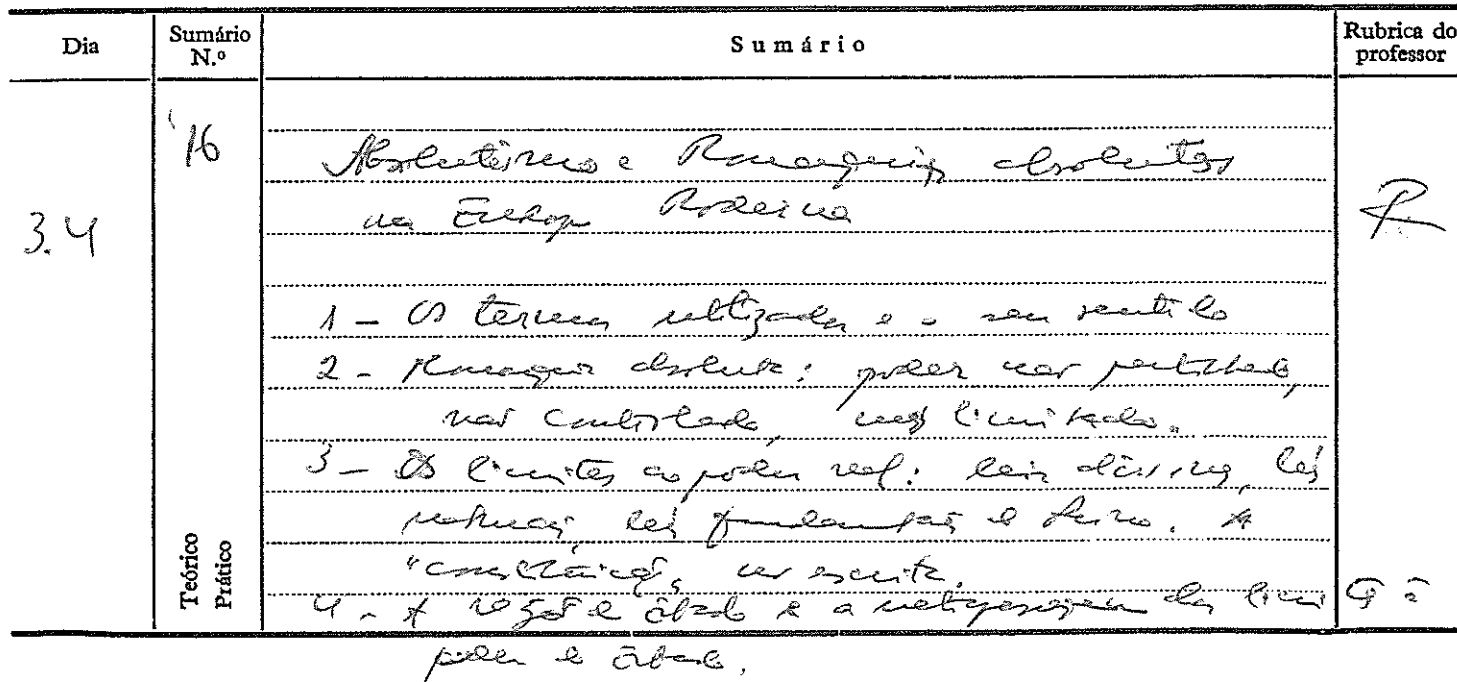 Dia Sumário N.º Sumário Rubrica do professor
3.4 16
Absolutismo e Monarquias absolutas
na Europa Moderna
1 - Os termos utilizados e o seu sentido
2 - Monarquia absoluta: poder não partilhado,
não controlado, mas limitado.
3 - Os limites ao poder real: leis divinas, leis
naturais, leis fundamentais do Reino. A
"constituição" não escrita.
4 - A razão de Estado e a dos
poder de Estado.
Teórico
Prático